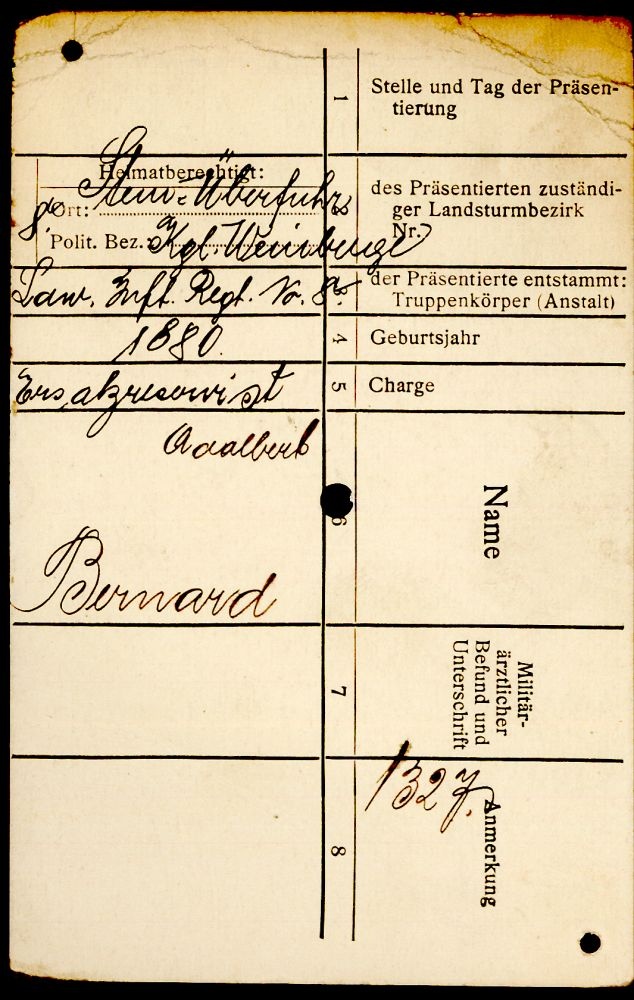 1 Stelle und Tag der Präsen-
tierung
Heimatberechtigt:
Stein-Überfuhr
8.
Ort:
Polit. Bez.: Kgl. Weinberge
2 des Präsentierten zuständi-
ger Landsturmbezirk
Nr.
Ldw. Inft. Regt. No. 8.
3 der Präsentierte entstammt:
Truppenkörper (Anstalt)
1880.
4 Geburtsjahr
Ersatzreservist
5 Charge
Adalbert
Bernard
6 Name
7 Militär-
ärztlicher
Befund und
Unterschrift
1327.
8 Anmerkung